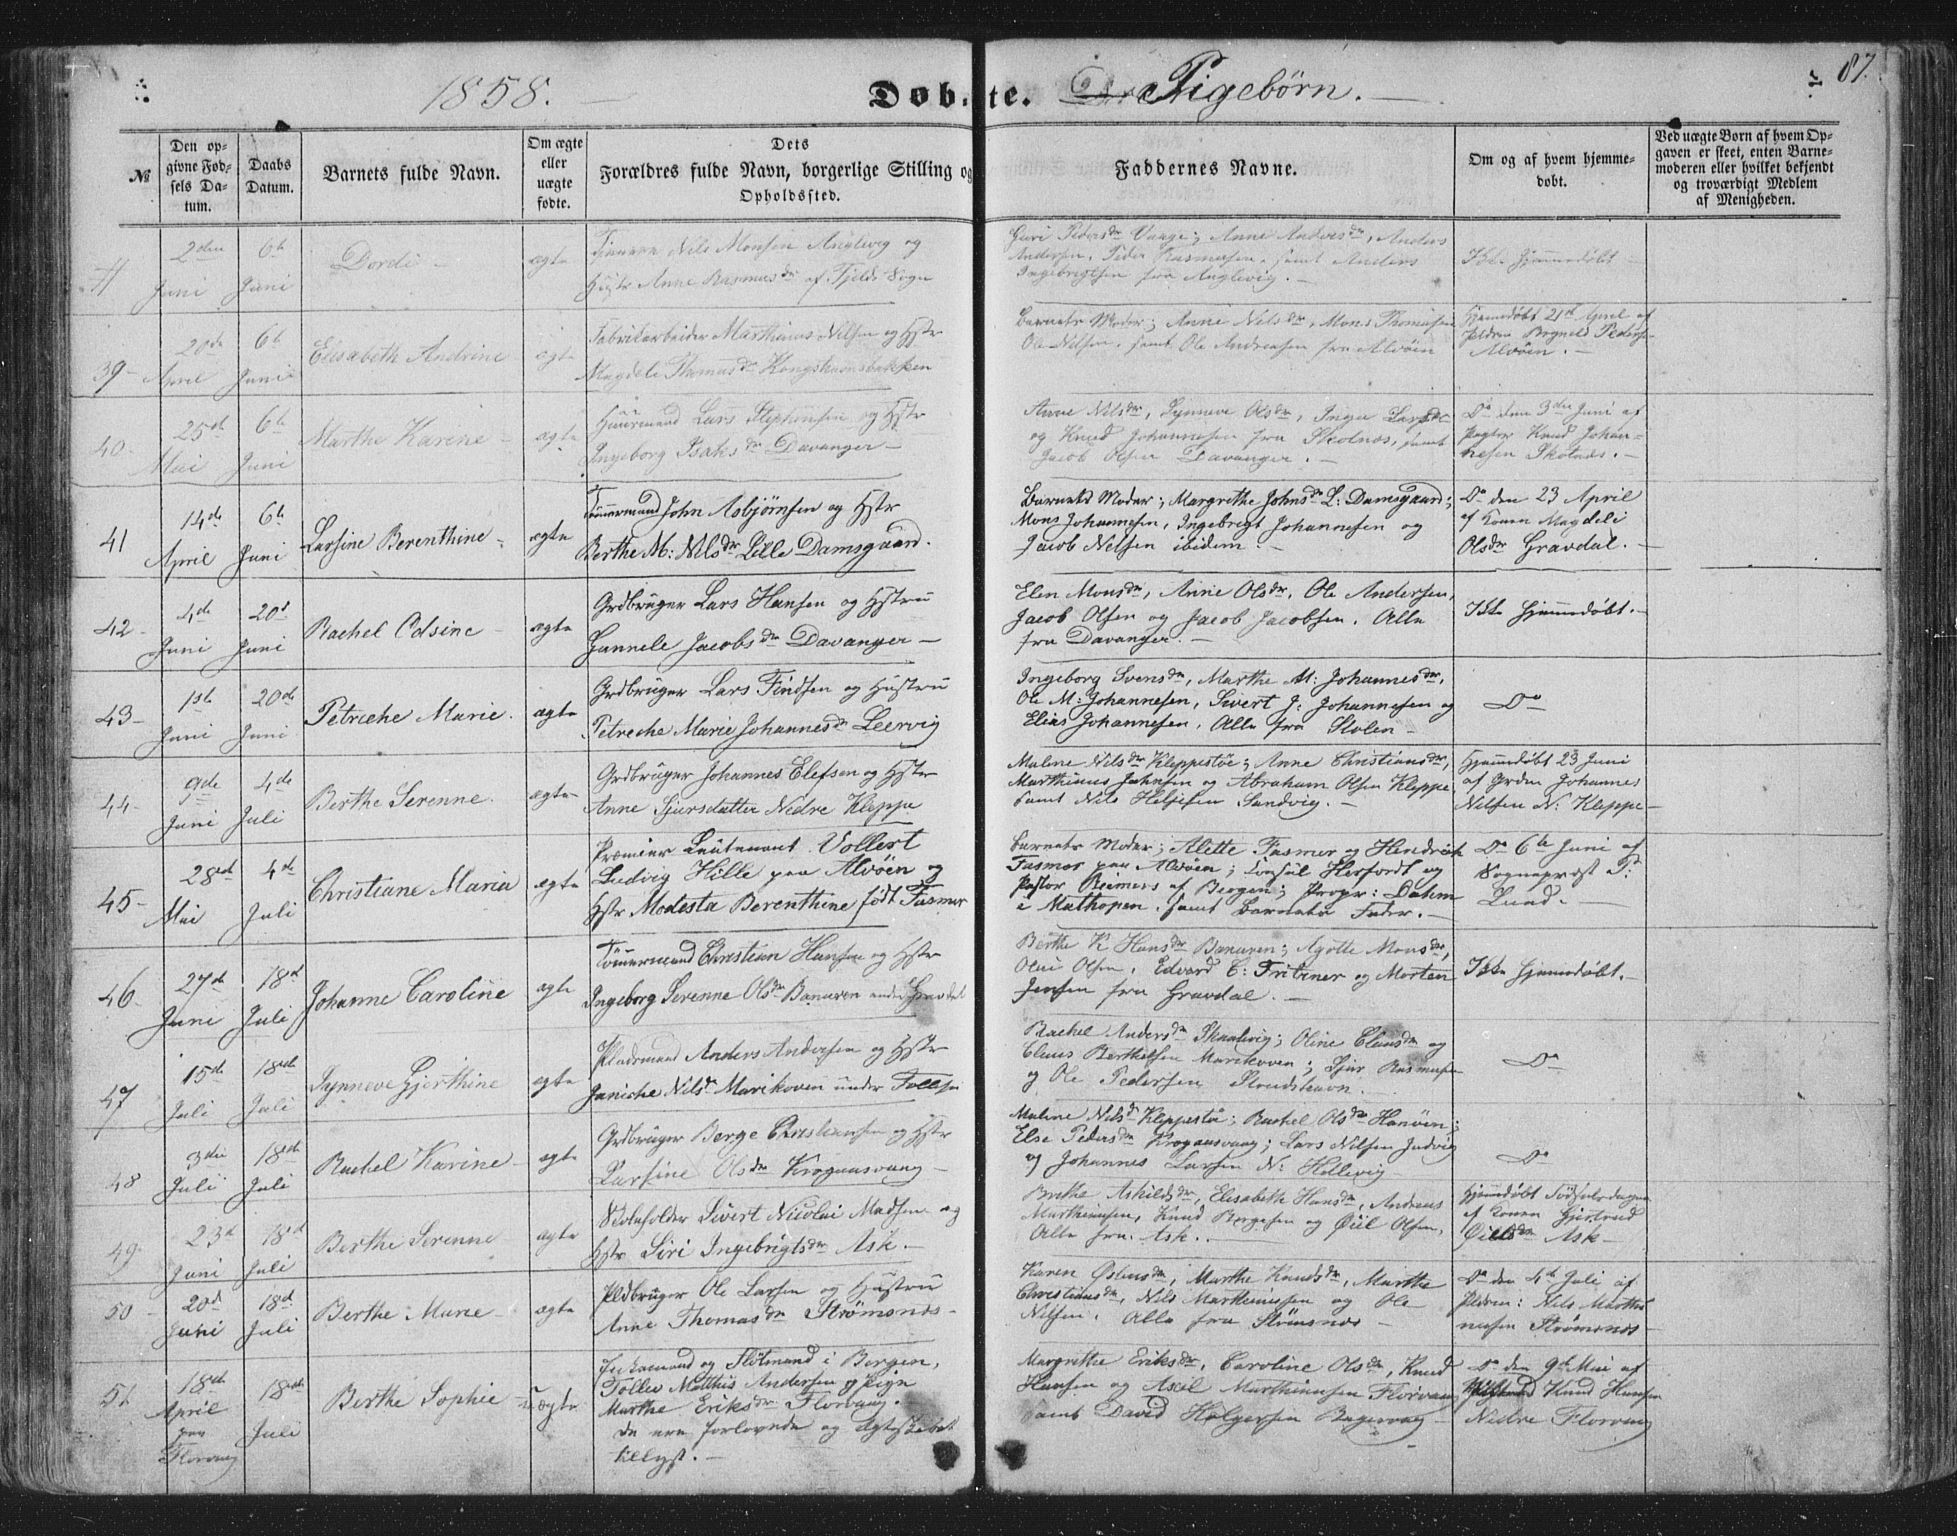 1858. Døbte. Pigebørn. 87.
№
Den opgivne Fødsels Datum.
Daabs Datum.
Barnets fulde Navn.
Om ægte eller uægte fødte.
Dets Forældres fulde Navn, borgerlige Stilling og Opholdssted.
Faddernes Navne.
Om og af hvem hjemmedøbt.
Ved uægte Børn af hvem Opgaven er skeet, enten Barnemoderen eller hvilket bekjendt og troværdigt Medlem af Menigheden.
2den Juni
6te Juni
Dordi
ægte
Nils Monsen og
Hstr Anne Rasmusdr af Fjelds Sogn
Guri Pedersdr Vaage; Anne Andersdr, Anders
Andersen, Peder Rasmusen, samt Anders
Ingebrigtsen fra
Ikke Hjemmedøbt
39
20de April
6te Juni
Elisabeth Andrine
ægte
Fabrikarbeider Marthinus Nilsen og Hstr
Magdele Thomasdr Kongshavnsbakken
Barnets Moder; Anne Nilsdr, Mons Thomasen
Ole Nilsen, samt Ole Andreasen fra Alvøen
Hjemmedøbt 21de April af
Alvøen.
40
25de Mai
6te Juni
Marthe Karine
ægte
Huusmand Lars Stephensen og Hstr
Ingeborg Isaksdr Davanger
Anne Nilsdr, Synneve Olsdr, Inger Larsdr
og Knud Johannesen fra Skolnes, samt
Jacob Olsen Davanger.
Do den 3die Juni af
Knud Johannesen Skolnes.
41
14de April
6te Juni
Larsine Berenthine
ægte
Tømmermand John Asbjørnsen og Hstr
Berthe M: Nilsdr Lille Damsgaard.
Barnets Moder; Margrethe Johnsdr L: Damsgaard;
Mons Johannesen, Ingebrigt Johannesen og
Jacob Nilsen ibidem.
Do den 23 April
af Konen Magdeli
Olsdr Gravdal.
42
4de Juni
20de Juni
Rachel Odsine
ægte
Grdbruger Lars Hansen og Hustru
Gunnele Jacobsdr Davanger
Elen Monsdr, Anne Olsdr, Ole Andersen,
Jacob Olsen og Jacob Jacobsen. Alle
fra Davanger.
Ikke Hjemmedøbt.
43
1ste Juni
20de Juni
Petreche Marie.
ægte
Grdbruger Lars Findsen og Hustru
Petreche Marie Johannesdr Leervig
Ingeborg Svensdr, Marthe M: Johannesdr,
Ole M: Johannesen, Sivert J: Johannesen og
Elias Johannesen. Alle fra Stolen
Do
44
9de Juni
4de Juli
Berthe Serenne.
ægte
Grdbruger Johannes Elefsen og Hstr
Anne Sjursdatter Nedre Kleppe
Malene Nilsdr Kleppestøe; Anne Christiansdr,
Marthinus Johnsen og Abraham Olsen Kleppe
samt Nils Heljesen Sandvig.
Hjemmedøbt 23 Juni
af Grdm Johannes
Nilsen N: Kleppe
45
28de Mai
4de Juli
Christiane Maria
ægte
Premier Leutenant Vollert
Ludvig Hille paa Alvøen og
Hstr Modesta Berenthine født Fasmer
Barnets Moder; Alette Fasmer og Hendrich
Fasmer paa Alvøen; Consul Herfordt og
Pastor Reimers af Bergen; Propr: Dahm
i Mathopen, samt Barnets Fader.
Do 6te Juni af
Sogneprest P:
Lund.
46
27de Juni
18de Juli
Johanne Caroline
ægte
Tømmermand Christian Hansen og Hstr
Ingeborg Serenne Olsdr Banuren under Gravdal
Berthe K Hansdr Banuren; Agotte Monsdr,
Olai Olsen, Edvard C: Fribiner og Morten
Jensen fra Gravdal.
Ikke Hjemmedøbt.
47
15de Juli
18de Juli
Synneve Gjerthine
ægte
Pladsmand Anders Andersen og Hstr
Janiche Nilsdr Marikoven under
Rachel Andersdr Skaalevig; Oline Clausdr og
Claus Berthelsen Marikoven; Sjur Rasmusen
og Ole Pedersen
Do
48
3die Juli
18de Juli
Rachel Karine
ægte
Grdbruger Berge Christiansen og Hstr
Larsine Olsdr Krogaasvaag
Malene Nilsdr Kleppestø; Rachel Olsdr Hanøen;
Else Pedersdr Krogaasvaag; Lars Nilsen
og Johannes Larsen N: Hellevig
Do
49
23d Juni
18de Juli
Berthe Serenne
ægte
Skoleholder Sivert Nicolai Madsen og
Hstr Siri Ingebrigtsdr Ask.
Brithe Askildsdr, Elisabeth Hansdr, Andreas
Marthinusen, Knud Bergesen og Øiil Olsen,
Alle fra Ask.
Hjemmedøbt Fødselsdagen
af Konen Gjertrud
Ask
50
20de Juni
18de Juli
Berthe Marie
ægte
Pldbruger Ole Larsen og Hustru
Anne Thomasdr Strømsnes
Karen Marthe Knudsdr, Marthe
Christiansdr, Nils Marthinussen og Ole
Nilsen. Alle fra Strømsnes
Do den 4de Juli af
Nils Marthinusen Strømsnes
51
18de April paa Florvaag
18de Juli
Berthe Sophie
uægte
og Slotmand i Bergen,
Tollev Matthis Andersen og Pigen
Marthe Eriksdr Florvaag.
De ere forlovede og Ægteskabet
tillyst.
Margrethe Eriksdr, Caroline Olsdr, Knud
Hansen og Axel Marthinusen Florvaag
samt David Holgersen
Do den 9de Mai af
Knud Hansen
Nedre Florvaag